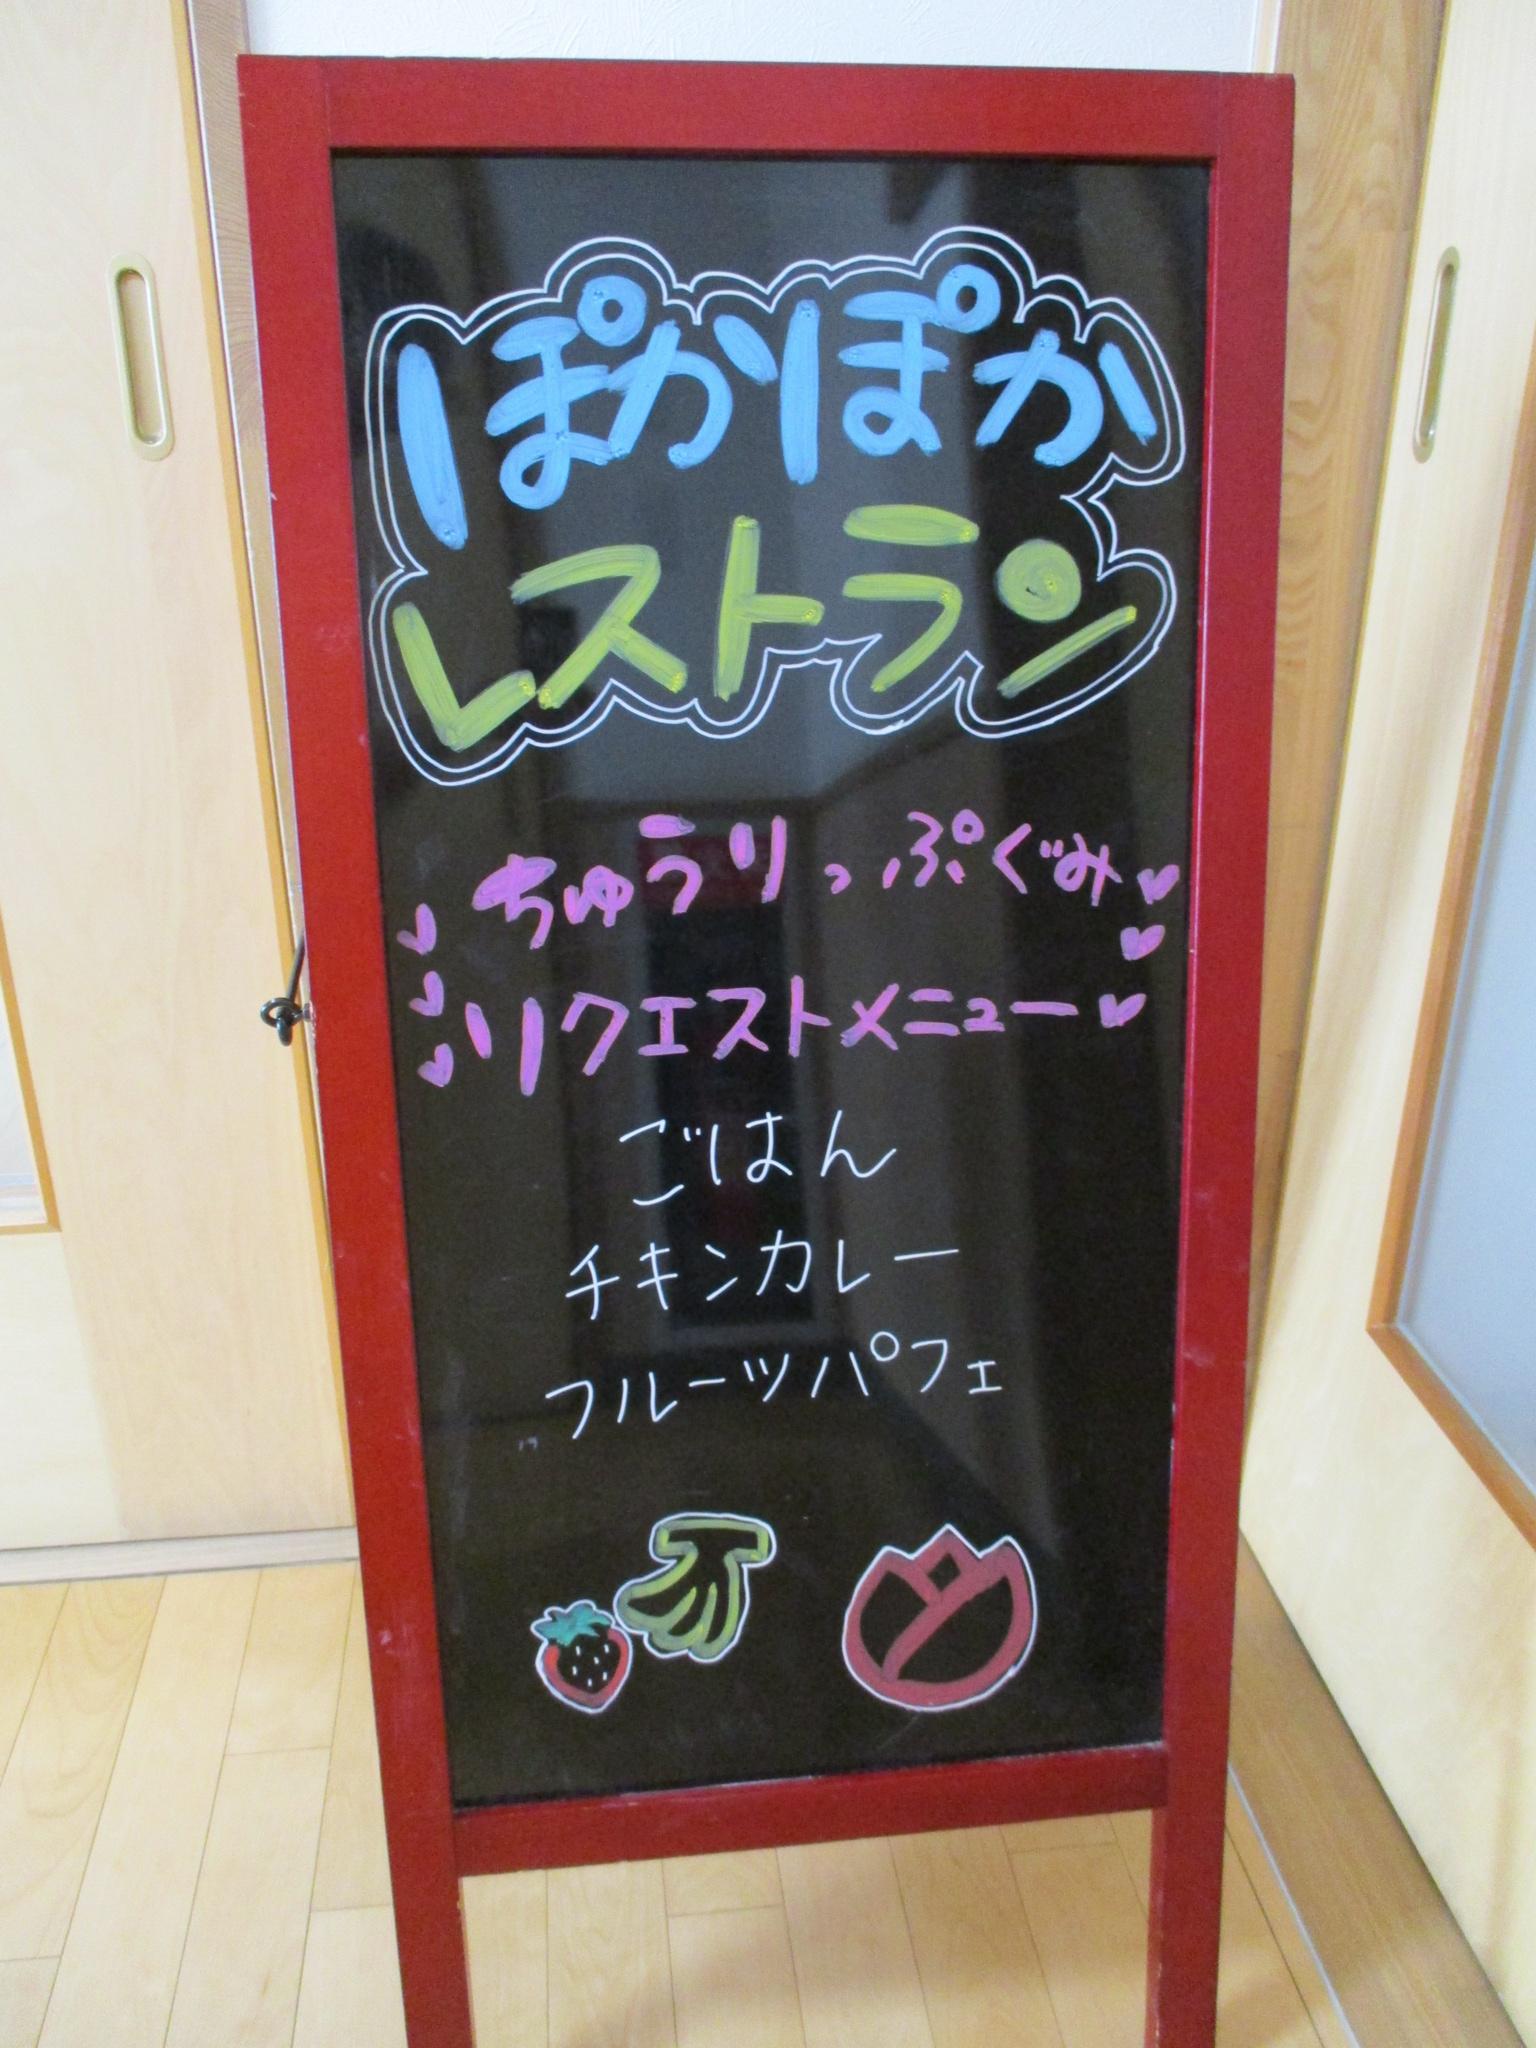 ぽかぽか
レストラン
ちゅうりっぷぐみ
リクエストメニュー
ごはん
チキンカレー
フルーツパフェ